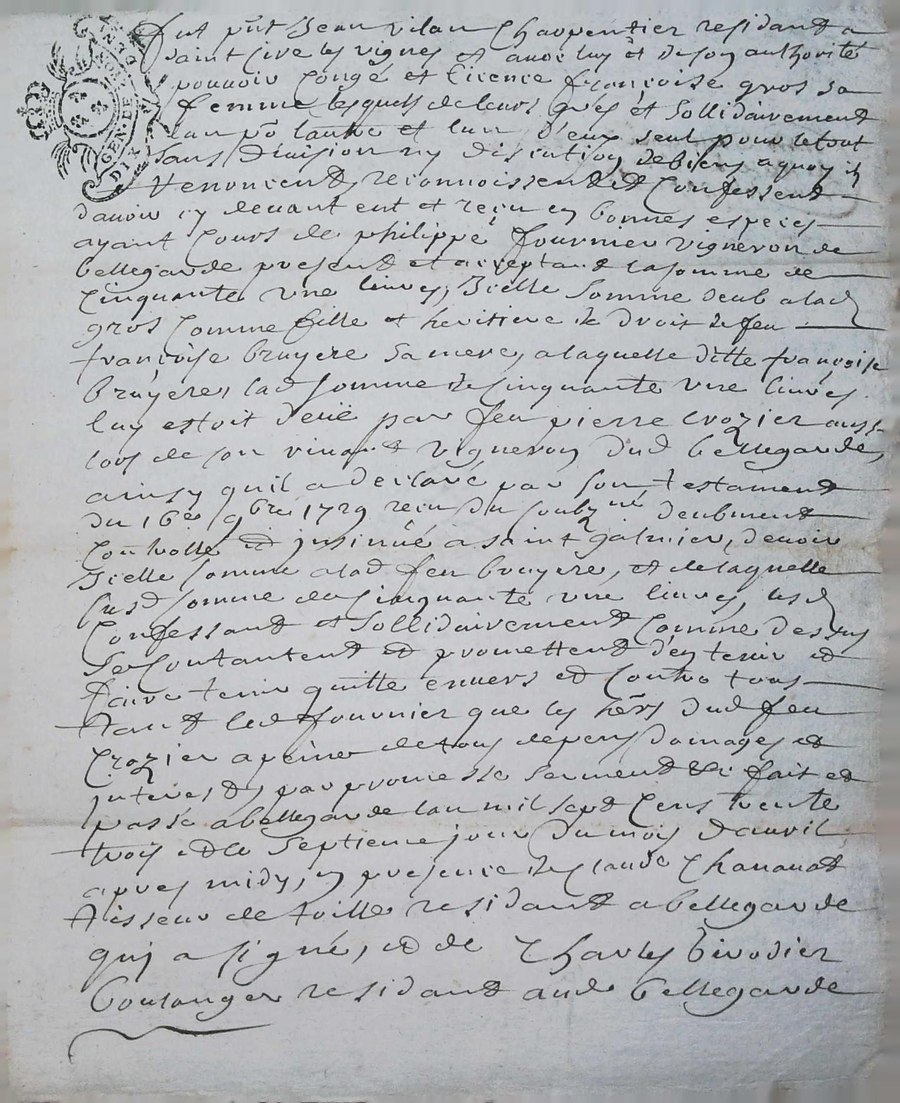 GEN. DE
DIX
fut pñt Jean vilan Charpentier residant a
saint Cire les vignes et avec luy et de son authorité
pouvoir Congé et licence françoise gros sa
femme lesquels de leurs grés et sollidairement
lun pō lautre et lun d'eux seul pour le tout
sans division ny discution de biens a quoy ils
renoncent, reconnoissent et Confessent
davoir cy devant eut et reçu en bonnes especes
ayant Cours de philippe fournier vigneron de
bellegarde present et acceptant la somme de
Cinquante une livres, Icelle somme deub a lad
gros Comme fille et heritiere de droit de feu
françoise bruyere sa mere, a laquelle ditte françoise
bruyere, lad somme de Cinquante une livres
luy estoit deüe par feu pierre crozier aussi
lors de son vivant vigneron dud bellegarde,
ainsy quil a declaré par son testament
du 16e 9bre 1729 reçu du soubzné deubment
Controllé et insinué a saint galmier, devoir
Icelle somme a lad feu bruyere, et de laquelle
susd somme de Cinquante une livres, lesd
Confessant et sollidairement Comme dessus
se Contantent et promettent d'en tenir et
faire tenir quitte envers et Contre tous
tant led fournier que les hers dud feu
Crozier a peine de tous depens domages et
interests, par promesse serment &c fait et
passé a bellegarde lan mil sept Cens trente
trois et le septieme jour du mois d'avril
apres midy, en presence de Claude Chanavat
tisseur de toille residant a bellegarde
qui a signé, et de Charles birodier
boulanger residant aud bellegarde